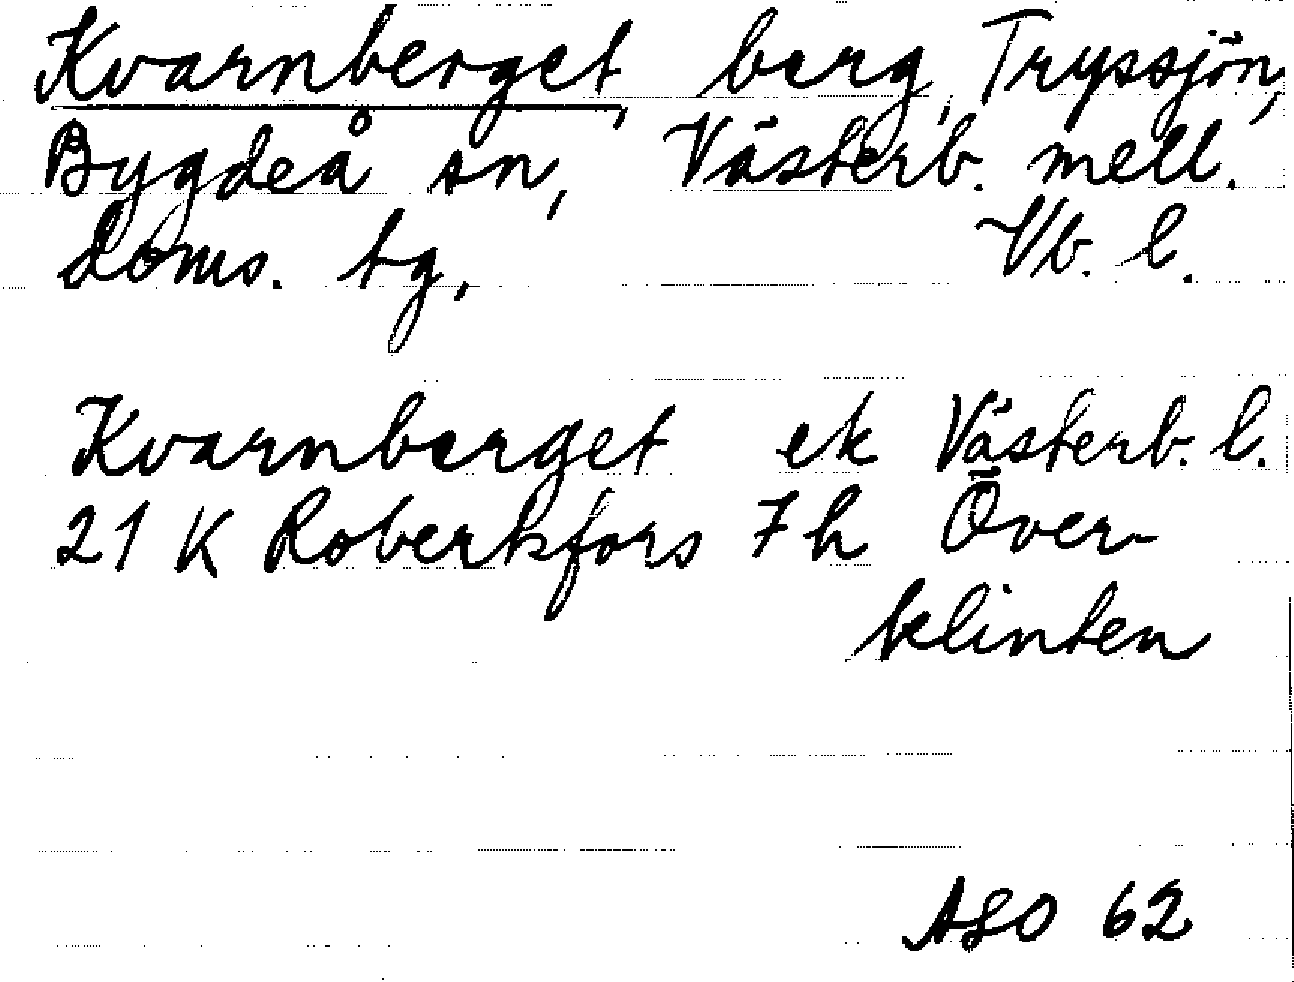 Kvarnberget, berg, Tryssjön,
Bygdeå sn, Västerb. mell.
doms. tg, Vb. l.
Kvarnberget ek Västerb. l.
21 K Robertsfors 7 h Över-
klinten
ASO 62